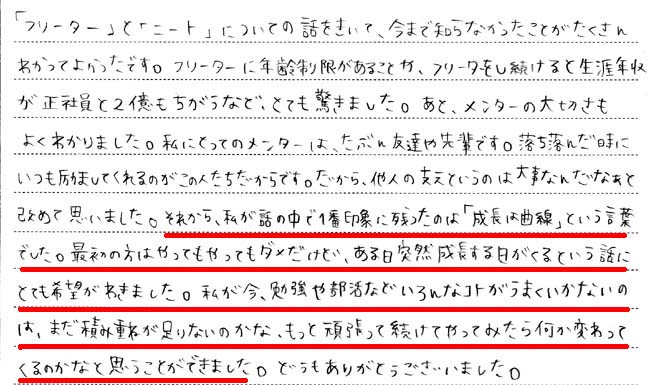 「フリーター」と「ニート」についての話をきいて、今まで知らなかったことがたくさん
わかってよかったです。フリーターに年齢制限があることや、フリータをし続けると生涯年収
が正社員と2億もちがうなど、とても驚きました。あと、メンターの大切さも
よくわかりました。私にとってのメンターは、たぶん友達や先輩です。落ち落んだ時に
いつも励ましてくれるのがこの人たちだからです。だから、他人の支えというのは大事なんだなぁと
改めて思いました。それから、私が話の中で1番印象に残ったのは「成長は曲線」という言葉
でした。最初の方はやってもやってもダメだけど、ある日突然成長する日がくるという話に
とても希望がわきました。私が今、勉強や部活などいろんなコトがうまくいかないの
は、まだ積み重ねが足りないのかな、もっと頑張って続けてやってみたら何か変わって
くるのかなと思うことができました。どうもありがとうございました。